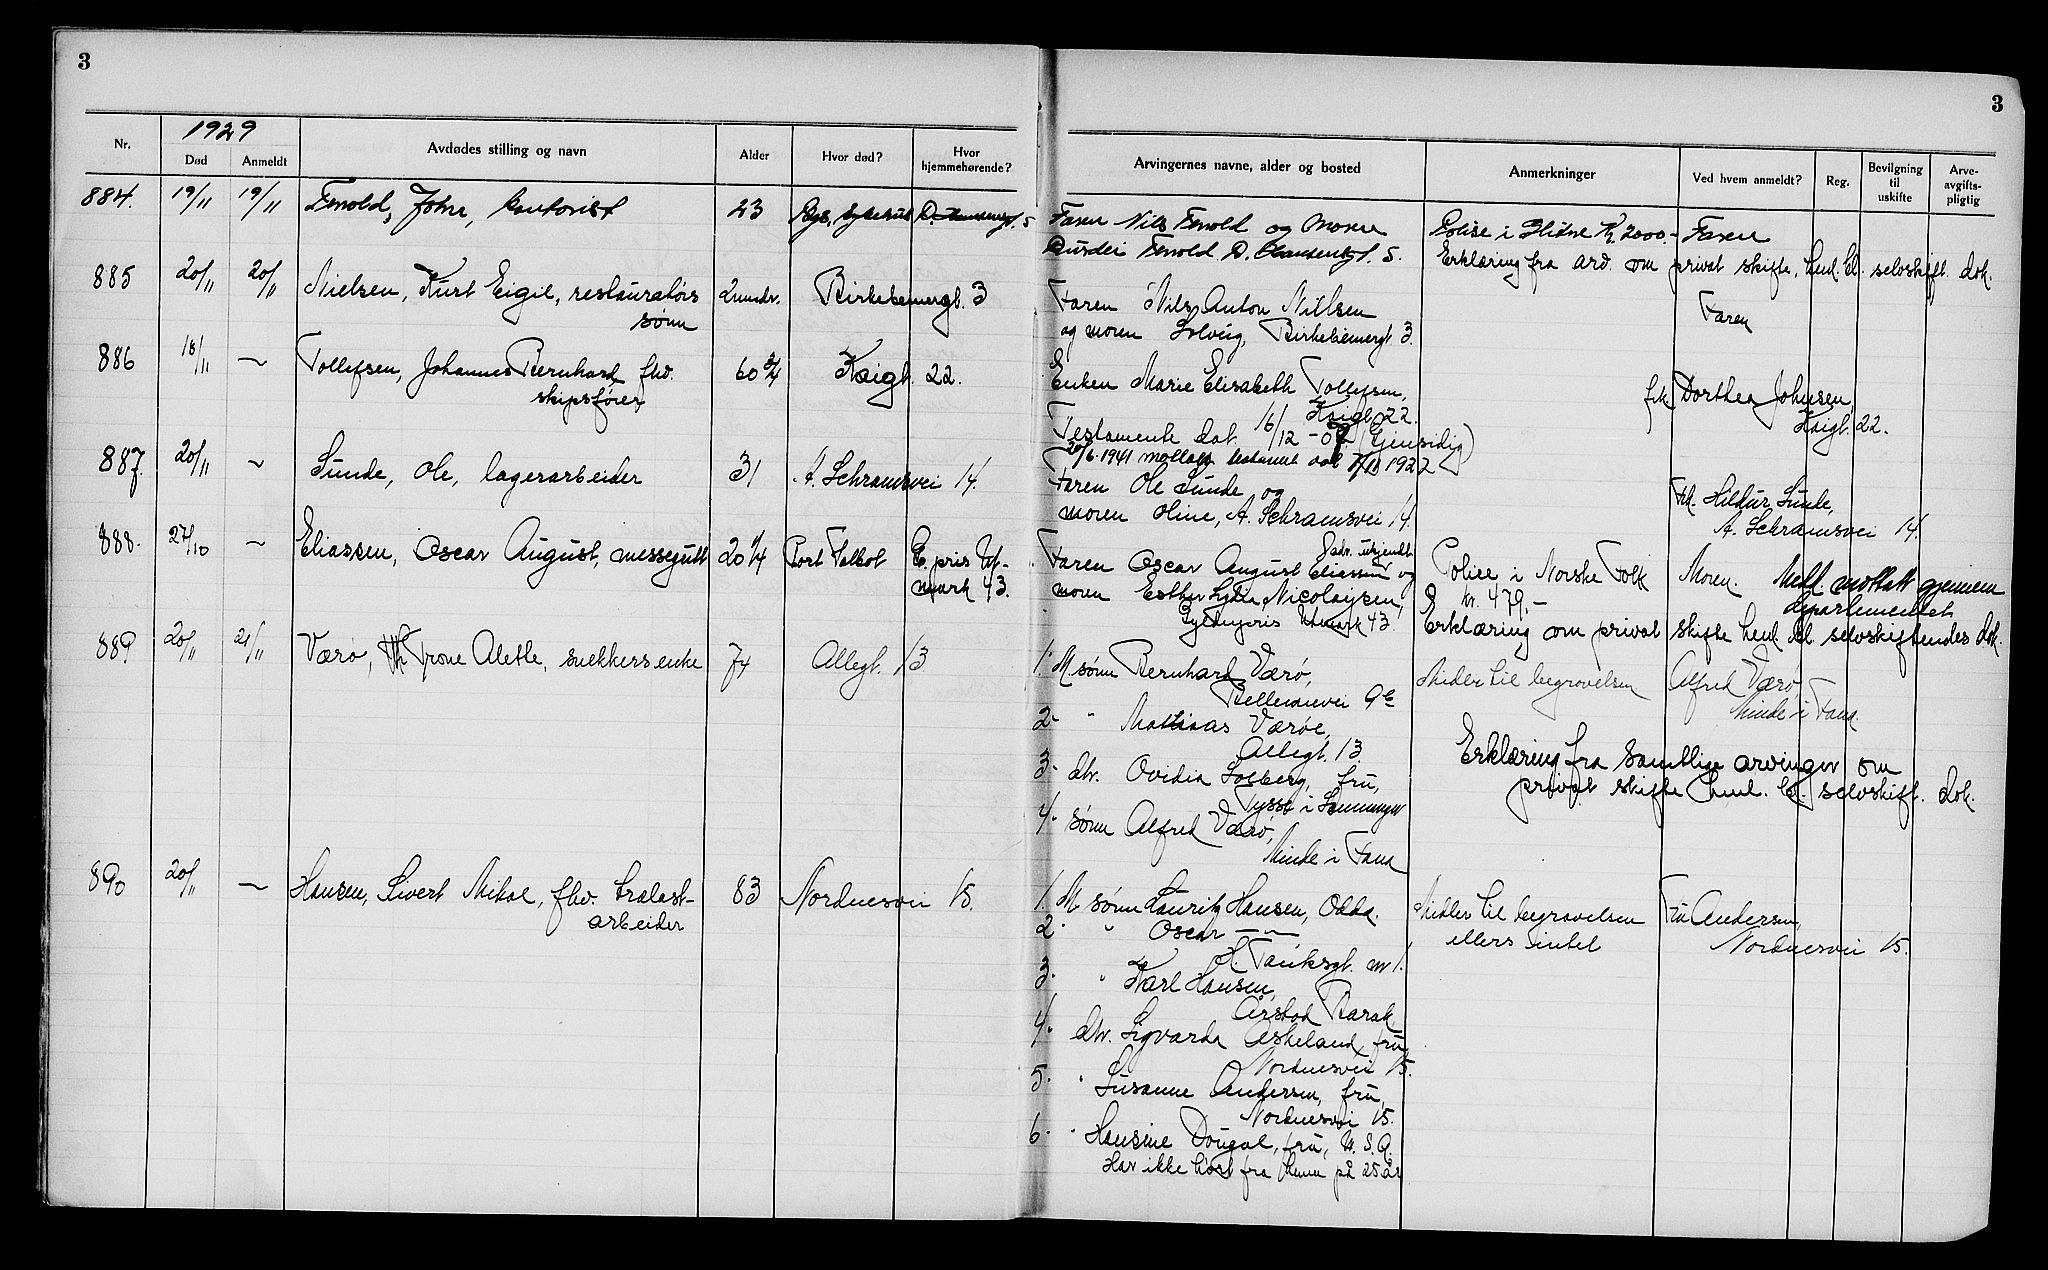 3
3
1929
Nr. Død Anmeldt Avdødes stilling og navn Alder Hvor død? Hvor hjemmehørende? Arvingernes navne, alder og bosted Anmerkninger Ved hvem anmeldt? Reg. Bevilgning til uskifte Arve-avgifts-pligtig
884. 19/11 19/11 Fenold, John, kontorist 23 5
Faren Nils Fenold og Moren
Fenold D. 5.
Polise i Kr. 2000.- Faren
Erklæring fra om privat skifte, henl. bl. selvskift. dok.
885 20/11 20/11 Nielsen, Kurt Eigil, restauratørs
sønn
2 Birkebeinergt. 3
Faren Nils Anton Nielsen
og moren Solveig, Birkebeinergt. 3.
Faren
886 18/11 〃 Tollefsen, Johannes Bernhard, fhv.
skipsfører,
60 3/4 Kaigt. 22.
Enken Marie Elisabeth Tollefsen,
Kaigt. 22.
Testamente dat. 16/12 - 07 (Gjensidig)
20/6. 1941 mottatt testament dat 1922
frk. Dorthea Johnsen,
Kaigt. 22.
887. 20/11 〃 Sunde, Ole, lagerarbeider 31 A. Schramsvei 14.
Faren Ole Sunde og
moren Oline, A. Schramsvei 14.
Frk. Hildur Sunde,
A. Schramsvei 14.
888. 27/10 〃 Eliassen, Oscar August, messegutt 20 1/4 Port Talbot
mark 43.
adr. ukjendt
Faren Oscar August Eliassen og
moren Esther Lydia Nicolaysen,
43.
Police i Norske Folk
kr. 479.-
Moren. Medl. mottatt gjennem
departementet
Erklæring om privat skifte henl. bl. selvskiftendes dok.
889 20/11 21/11 Værø, Trone Aletle, snekkers enke 74 Allegt. 13
1. M. sønn Bernhard Værø,
9e
2. 〃 Mathias Værøe,
Allegt. 13.
3. dtr. Ovidia Solberg, fru,
Tysse i
4. sønn Alfred Værø,
Minde i Fana
Midler til begravelsen Alfred Værø,
Minde i Fana.
Erklæring fra samtlige arvinger om
privat skifte henl. bl. selvskift. dok.
890 20/11 〃 Hansen, Sivert Mikal, fhv. trælast-
arbeider
83 Nordnesvei 15.
1. M. sønn Lauritz Hansen, Odda.
2. 〃 Oscar 〃
H. Tanksgt. 1.
3. 〃 Karl Hansen,
Årstad Barak
4. dtr. Sigvarda Askeland, fru,
Nordnesvei 15.
5. 〃 Susanne Andersen, fru,
Nordnesvei 15.
6. 〃 Hansine Dougal, fru, U. S. A.
Har ikke hørt fra henne på 25 år
Midler til begravelsen
ellers intet
Fru Andersen,
Nordnesvei 15.